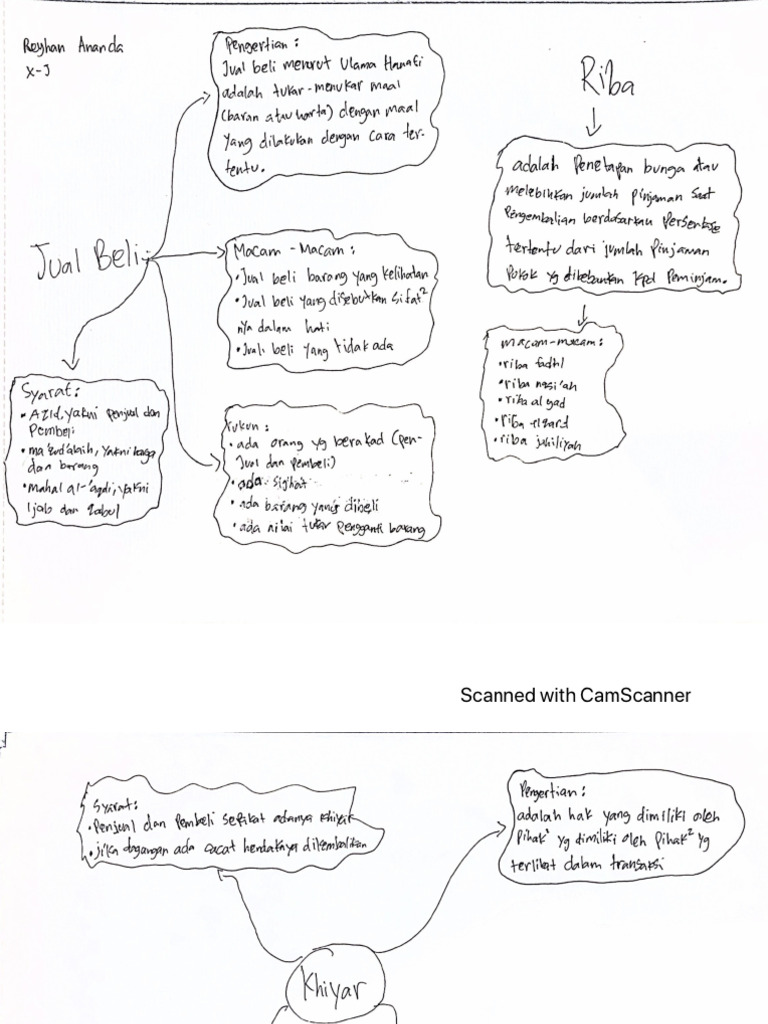 Reyhan Ananda
X-J
Pengertian :
Jual beli menurut Ulama Hanafi
adalah tukar-menukar maal
(baran atau harta) dengan maal
yang dilakukan dengan cara ter-
tentu.
Jual Beli
Macam - Macam :
• Jual beli barang yang kelihatan
• Jual beli yang disebutkan sifat²
nya dalam hati
• Jual beli yang tidak ada
Syarat :
• Azid, yakni penjual dan
Pembeli
• ma'qud'alaih, yakni haga
dan barang
• Mahal al-'aqdi, yakni
Ijab dan qabul
rukun :
• ada orang yg berakad (pen-
Jual dan pembeli)
• ada sighat
• ada barang yang dibeli
• ada nilai tukar pengganti barang
Riba
adalah Penetapan bunga atau
melebihkan jumlah pinjaman saat
Pengembalian berdasarkan Persentase
tertentu dari jumlah Pinjaman
Pokok yg dibebankan kpd Peminjam.
macam-macam :
• riba fadhl
• riba nasi'ah
• riba al yad
• riba
• riba jahiliyah
Scanned with CamScanner
Syarat :
• Penjual dan Pembeli sepakat adanya khiyar
• jika dagangan ada cacat hendaknya dikembalikan
Pengertian :
adalah hak yang dimiliki oleh
Pihak² yg dimiliki oleh Pihak² yg
terlibat dalam transaksi
Khiyar